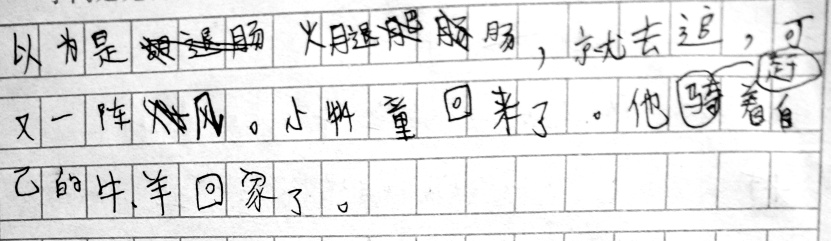 以为是火腿肠肠，就去追，可
又一阵风。小牧童回来了。他骑着自
赶
己的牛、羊回家了。